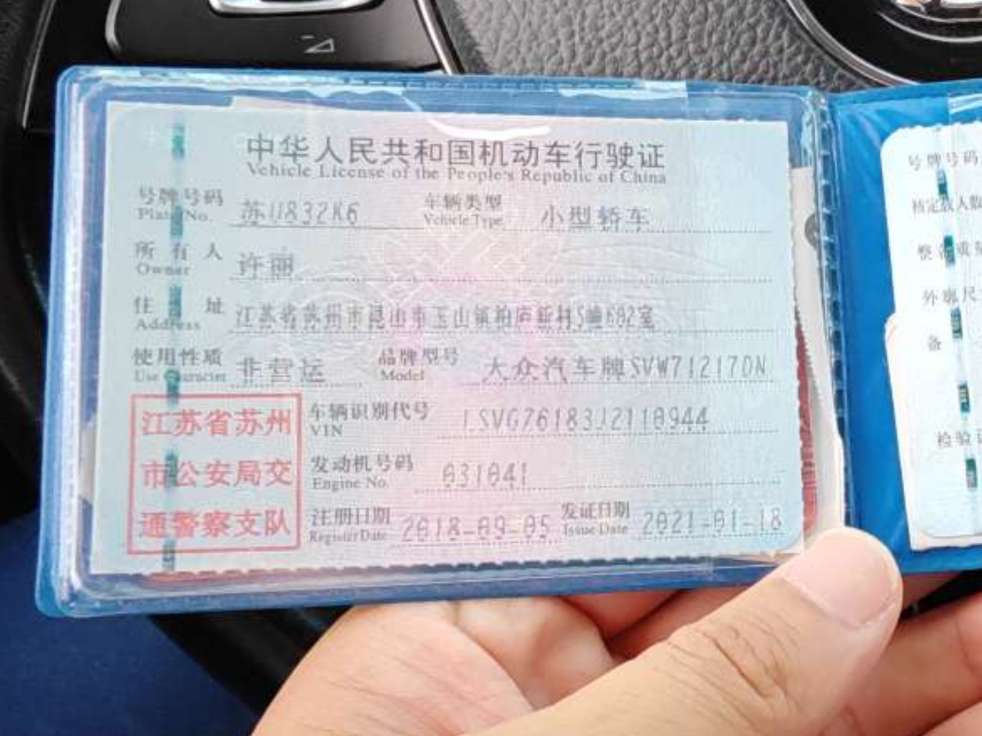 中华人民共和国机动车行驶证
Vehicle License of the People's Republic of China
号牌号码 Plate No. 苏U832K6 车辆类型 Vehicle Type 小型轿车
所有人 Owner 许丽
住址 Address 江苏省苏州市昆山市玉山镇柏庐新村5幢602室
使用性质 Use Character 非营运 品牌型号 Model 大众汽车牌SVW71217DN
江苏省苏州
市公安局交
通警察支队
车辆识别代号 VIN LSVG76183J2110944
发动机号码 Engine No. 031041
注册日期 Register Date 2018-09-05 发证日期 Issue Date 2021-01-18
号牌号码
核定载人数
整备质量
外廓尺
备
检验